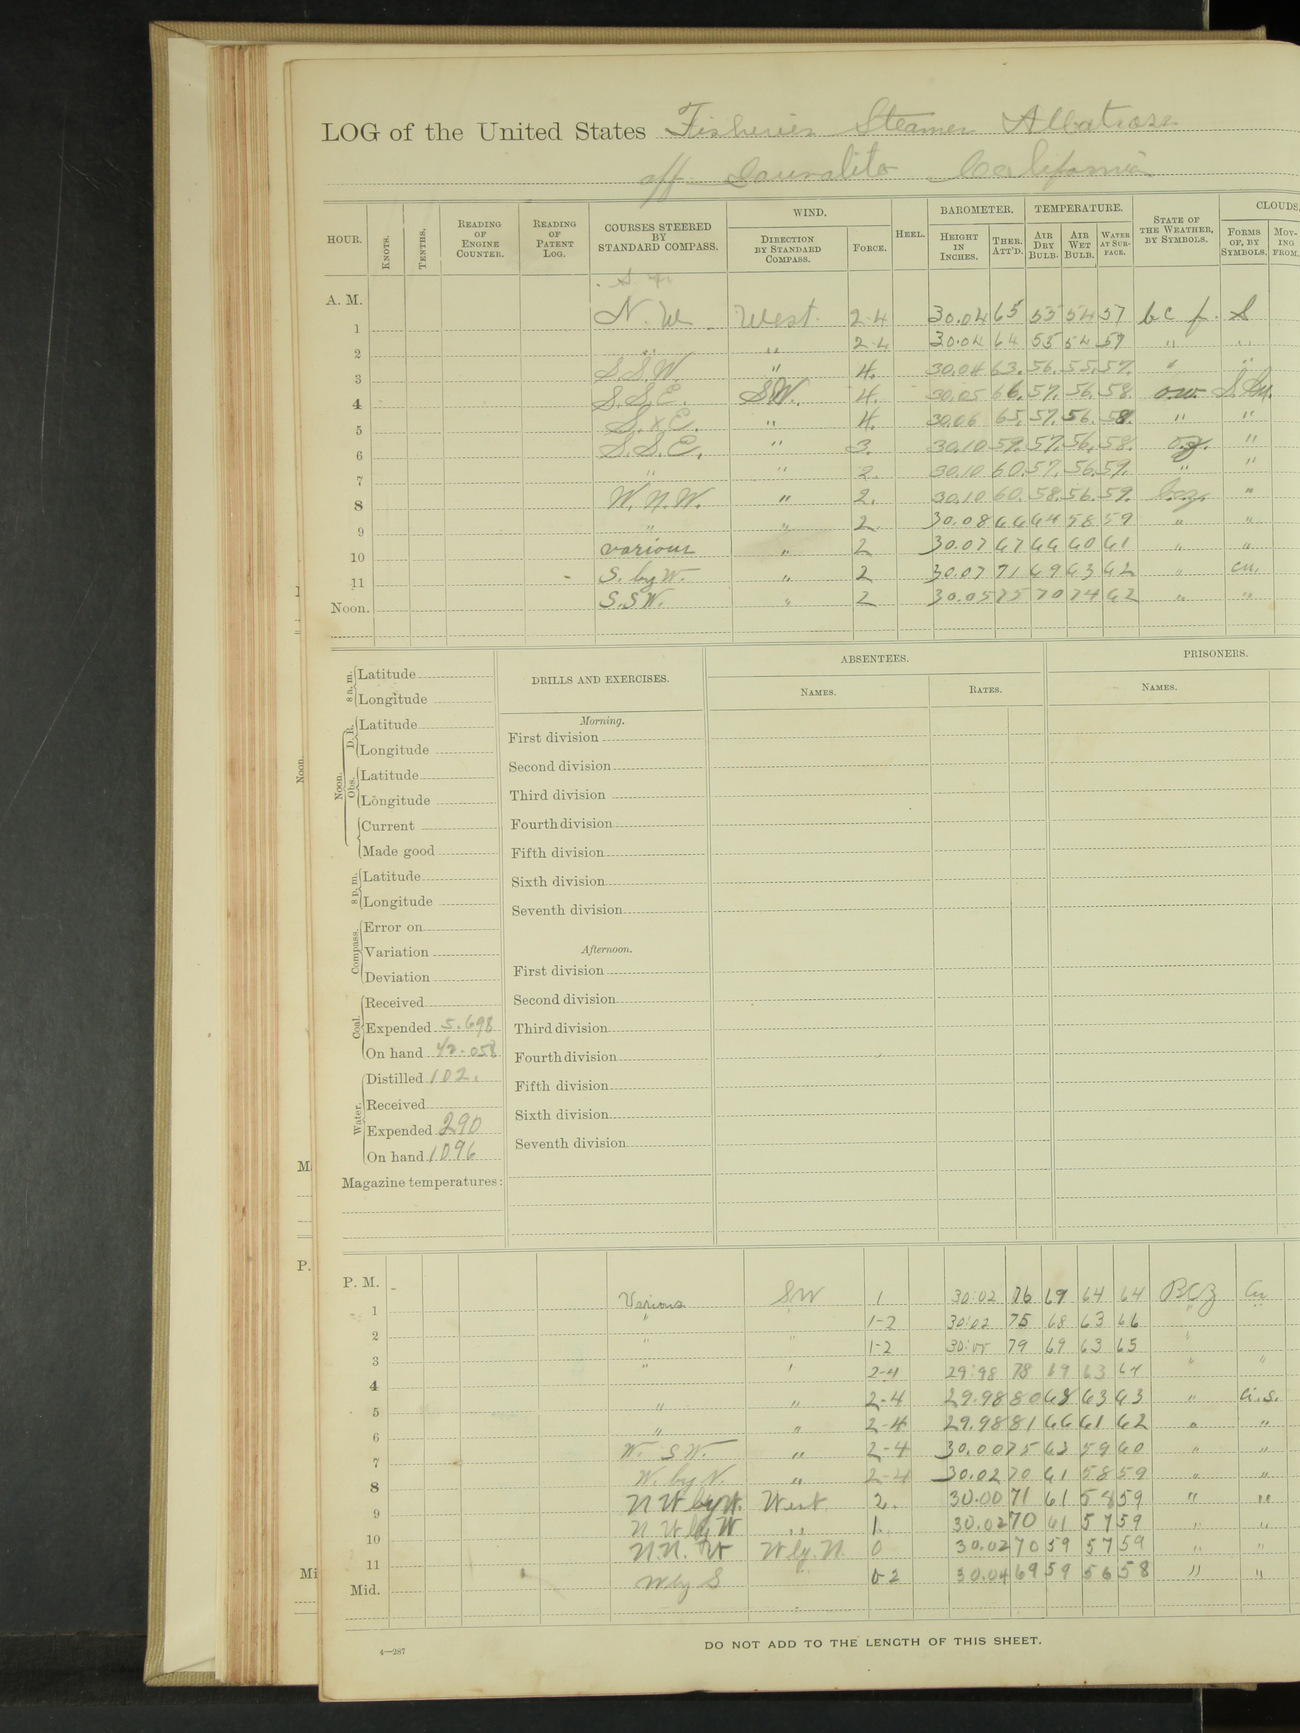 LOG of the United States Fisheries Steamer Albatross
off Sausalito California
HOUR. KNOTS. TENTHS. READING OF ENGINE COUNTER. READING OF PATENT LOG. COURSES STEERED BY STANDARD COMPASS. WIND. DIRECTION BY STANDARD COMPASS. FORCE. HEEL. BAROMETER. HEIGHT IN INCHES. THER. ATT'D. TEMPERATURE. AIR DRY BULB. AIR WET BULB. WATER AT SURFACE. STATE OF THE WEATHER, BY SYMBOLS. CLOUDS. FORMS OF, BY SYMBOLS. MOVING FROM.
A. M.
1 N. W. West. 2-4 30.04 65 55 54 57 b c f. S
2 " " 2-4 30.04 64 55 54 57 " "
3 S.S.W. " 4. 30.04 63. 56. 55. 57. " "
4 S.S.E. SW. 4. 30.05 66. 57. 56. 58. o.w. S.Cu.
5 S.xE. " 4. 30.06 65. 57. 56. 58. " "
6 S.S.E. " 3. 30.10 59. 57. 56. 58. o.z. "
7 " " 2. 30.10 60. 57. 56. 59. " "
8 W.N.W. " 2. 30.10 60. 58. 56. 59. b.c.z. "
9 " " 2. 30.08 66 64 58 59 " "
10 various " 2 30.07 67 66 60 61 " "
11 S. by W. " 2 30.07 71 69 63 62 " cu.
Noon. S.SW. " 2 30.05 75 70 74 62 " "
8 a. m. Latitude
Longitude
Noon. D. R. Latitude
Longitude
Obs. Latitude
Longitude
Current
Made good
8 p. m. Latitude
Longitude
Compass. Error on
Variation
Deviation
Coal. Received
Expended 5.698
On hand 42.058
Water. Distilled 102.
Received
Expended 290
On hand 1096
Magazine temperatures:
DRILLS AND EXERCISES.
Morning.
First division
Second division
Third division
Fourth division
Fifth division
Sixth division
Seventh division
Afternoon.
First division
Second division
Third division
Fourth division
Fifth division
Sixth division
Seventh division
ABSENTEES.
NAMES. RATES.
PRISONERS.
NAMES.
P. M.
1 Various SW 1 30:02 76 69 64 64 BCZ Cu
2 " 1-2 30:02 75 68 63 66 " "
3 " " 1-2 30:00 79 69 63 65 "
4 " " 2-4 29:98 78 69 63 64 " "
5 " " 2-4 29.98 80 68 63 63 " Ci.S.
6 " " 2-4 29.98 81 66 61 62 " "
7 W. SW. " 2-4 30.00 75 63 59 60 " "
8 W. by N. " 2-4 30.02 70 61 58 59 " "
9 N W by W. West 2. 30.00 71 61 58 59 " "
10 N W by W " 1. 30.02 70 61 57 59 " "
11 N.N. W W by. N. 0 30.02 70 59 57 59 " "
Mid. W by S 0-2 30.04 69 59 56 58 " "
4—287
DO NOT ADD TO THE LENGTH OF THIS SHEET.